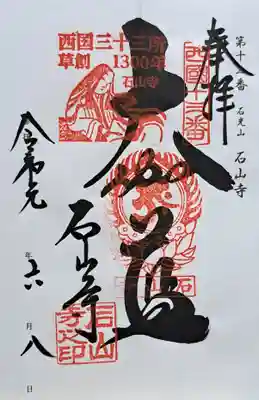 奉拝
第十三番 石光山 石山寺
西国十三番
西国三十三所
草創1300年
石山寺
大伽藍
石山寺
石山
寺之印
令和元年六月八日